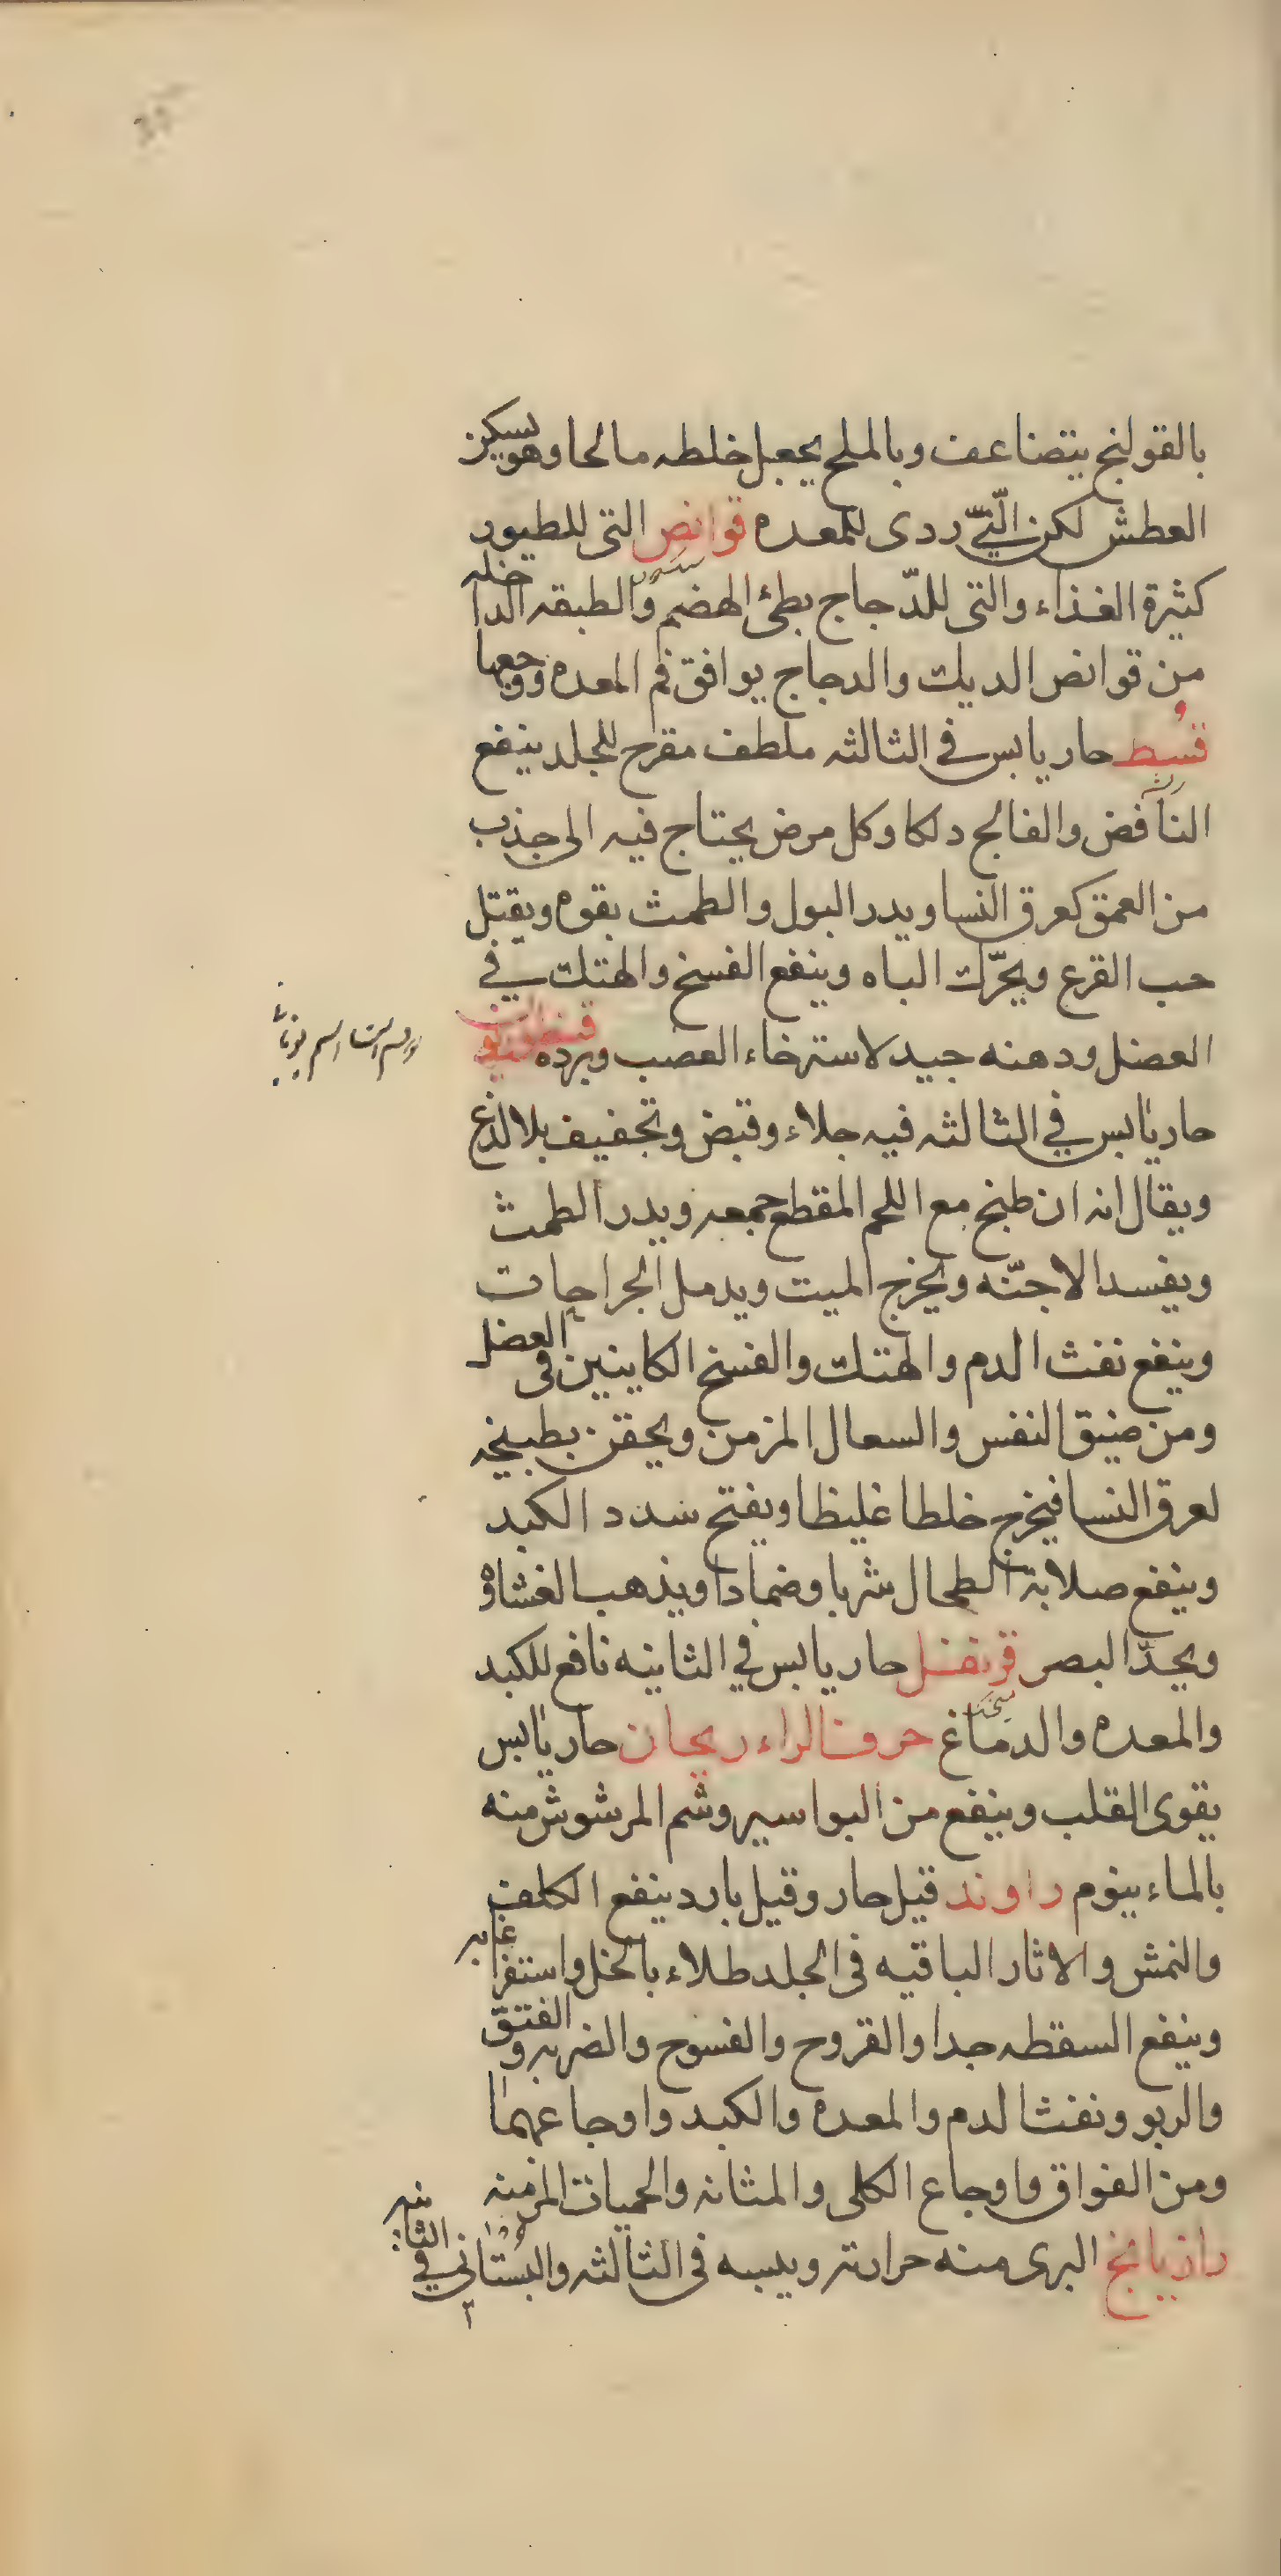 بالقولنج يتضاعف وبالملح يجعل خلطه مالحا وهو يسكن
العطش لكن النّيّ ردى للمعده قوانص التى للطيور
كثيرة الغذاء والتى للدّجاج بطئ الهضم والطبقه الداخله
من قوانص الديك والدجاج يوافق فم المعده ووجعها
قُسط حار يابس فى الثالثه ملطف مقرح للجلد ينفع
النافض والفالج دلكا وكل مرض يحتاج فيه الى جذب
من العمق كعرق النسا ويدر البول والطمث بقوه ويقتل
حب القرع ويحرّك الباه وينفع الفسخ والهتك في
العضل ودهنه جيد لاسترخاء العصب وبرده
حار يابس في الثالثه فيه جلاء وقبض وتجفيف بلا لدغ
ويقال انه ان طبخ مع اللحم المقطع جمعه ويدر الطمث
ويفسد الاجنّه ويخرج الميت ويدمل الجراحات
وينفع نفث الدم والهتك والفسخ الكاينين فى العضل
ومن ضيق النفس والسعال المزمن ويحقن بطبيخه
لعرق النسا فيخرج خلطا غليظا ويفتح سدد الكبد
وينفع صلابة الطحال شربا وضمادا ويذهب الغشاوه
ويحدّ البصر قرنفل حار يابس في الثانيه نافع للكبد
والمعده والدماغ حرف الراء ريحان حار يابس
يقوى القلب وينفع من البواسير وشم المرشوش منه
بالماء ينوم راوند قيل حار وقيل بارد ينفع الكلف
والنمش والاثار الباقيه فى الجلد طلاء بالخل واستفراغا به
وينفع السقطه جدا والقروح والفسوخ والضربه والفتق
والربو ونفث الدم والمعده والكبد واوجاعهما
ومن الفواق واوجاع الكلى والمثانه والحميات المزمنه
رازيانخ البرى منه حرارته ويبسه فى الثالثه والبستانى في الثانيه